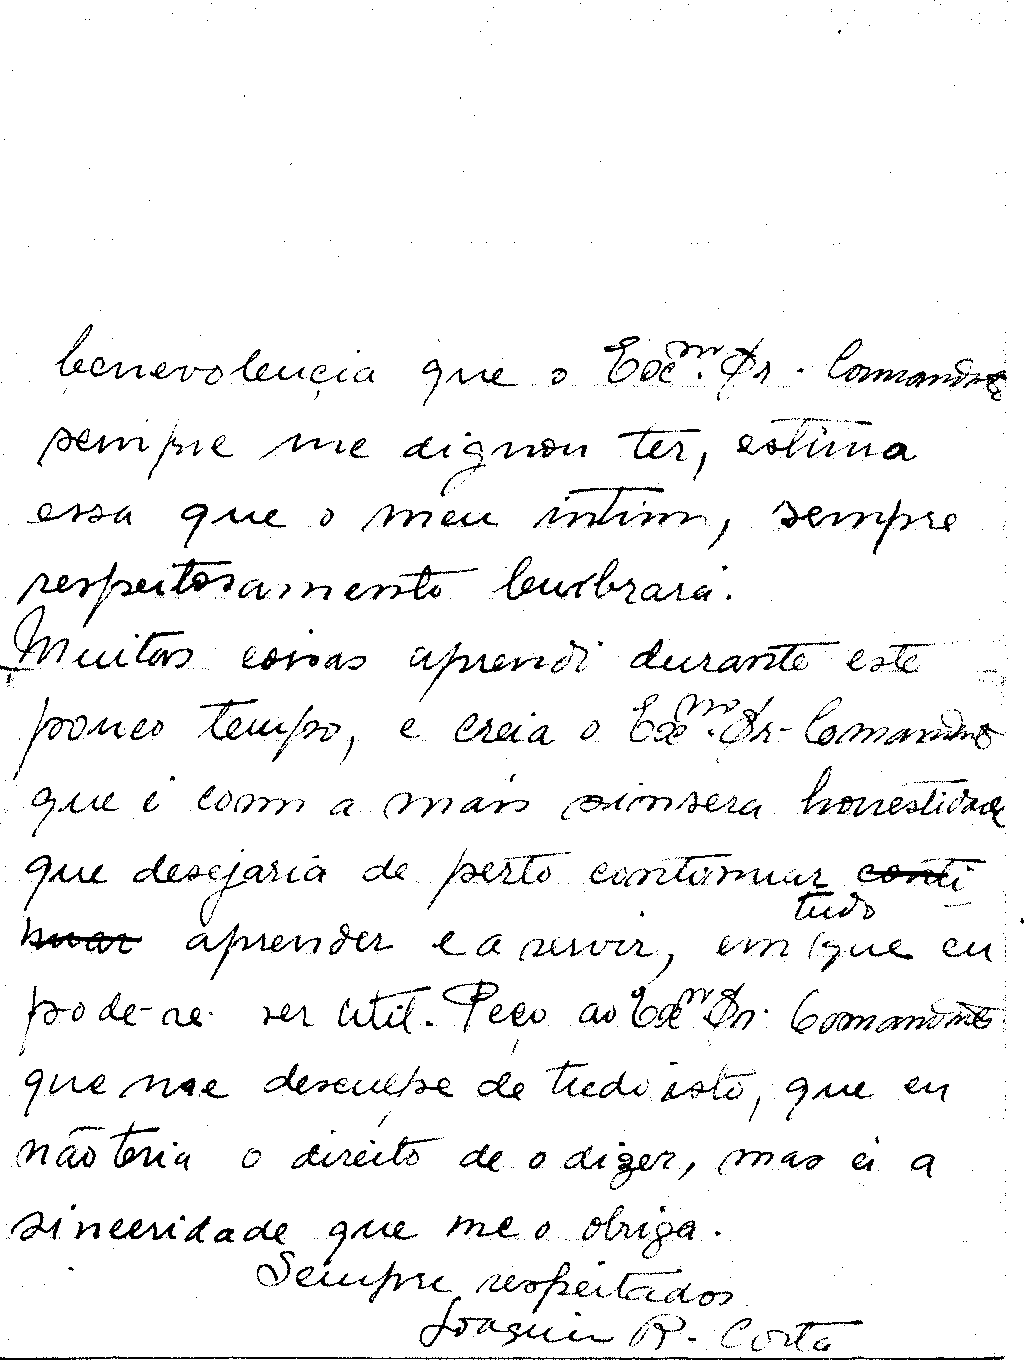 benevolencia que o Excmº. Dr. Comandante
sempre me dignou ter, estima
essa que o meu intimo, sempre
respeitosamente lembrará.
Muitas coisas aprendi durante este
pouco tempo, e creia o Exmº. Dr. Comandante
que é com a mais sinsera honestidade
que desejaria de perto continuar conti
nuar aprender e a servir, em tudo que eu
pode-se ser util. Peço ao Exmº Dr. Comandante
que me desculpe de tudo isto, que eu
não teria o direito de o dizer, mas é a
sinceridade que me o obriga.
Sempre respeitados
Joaquim R. Costa